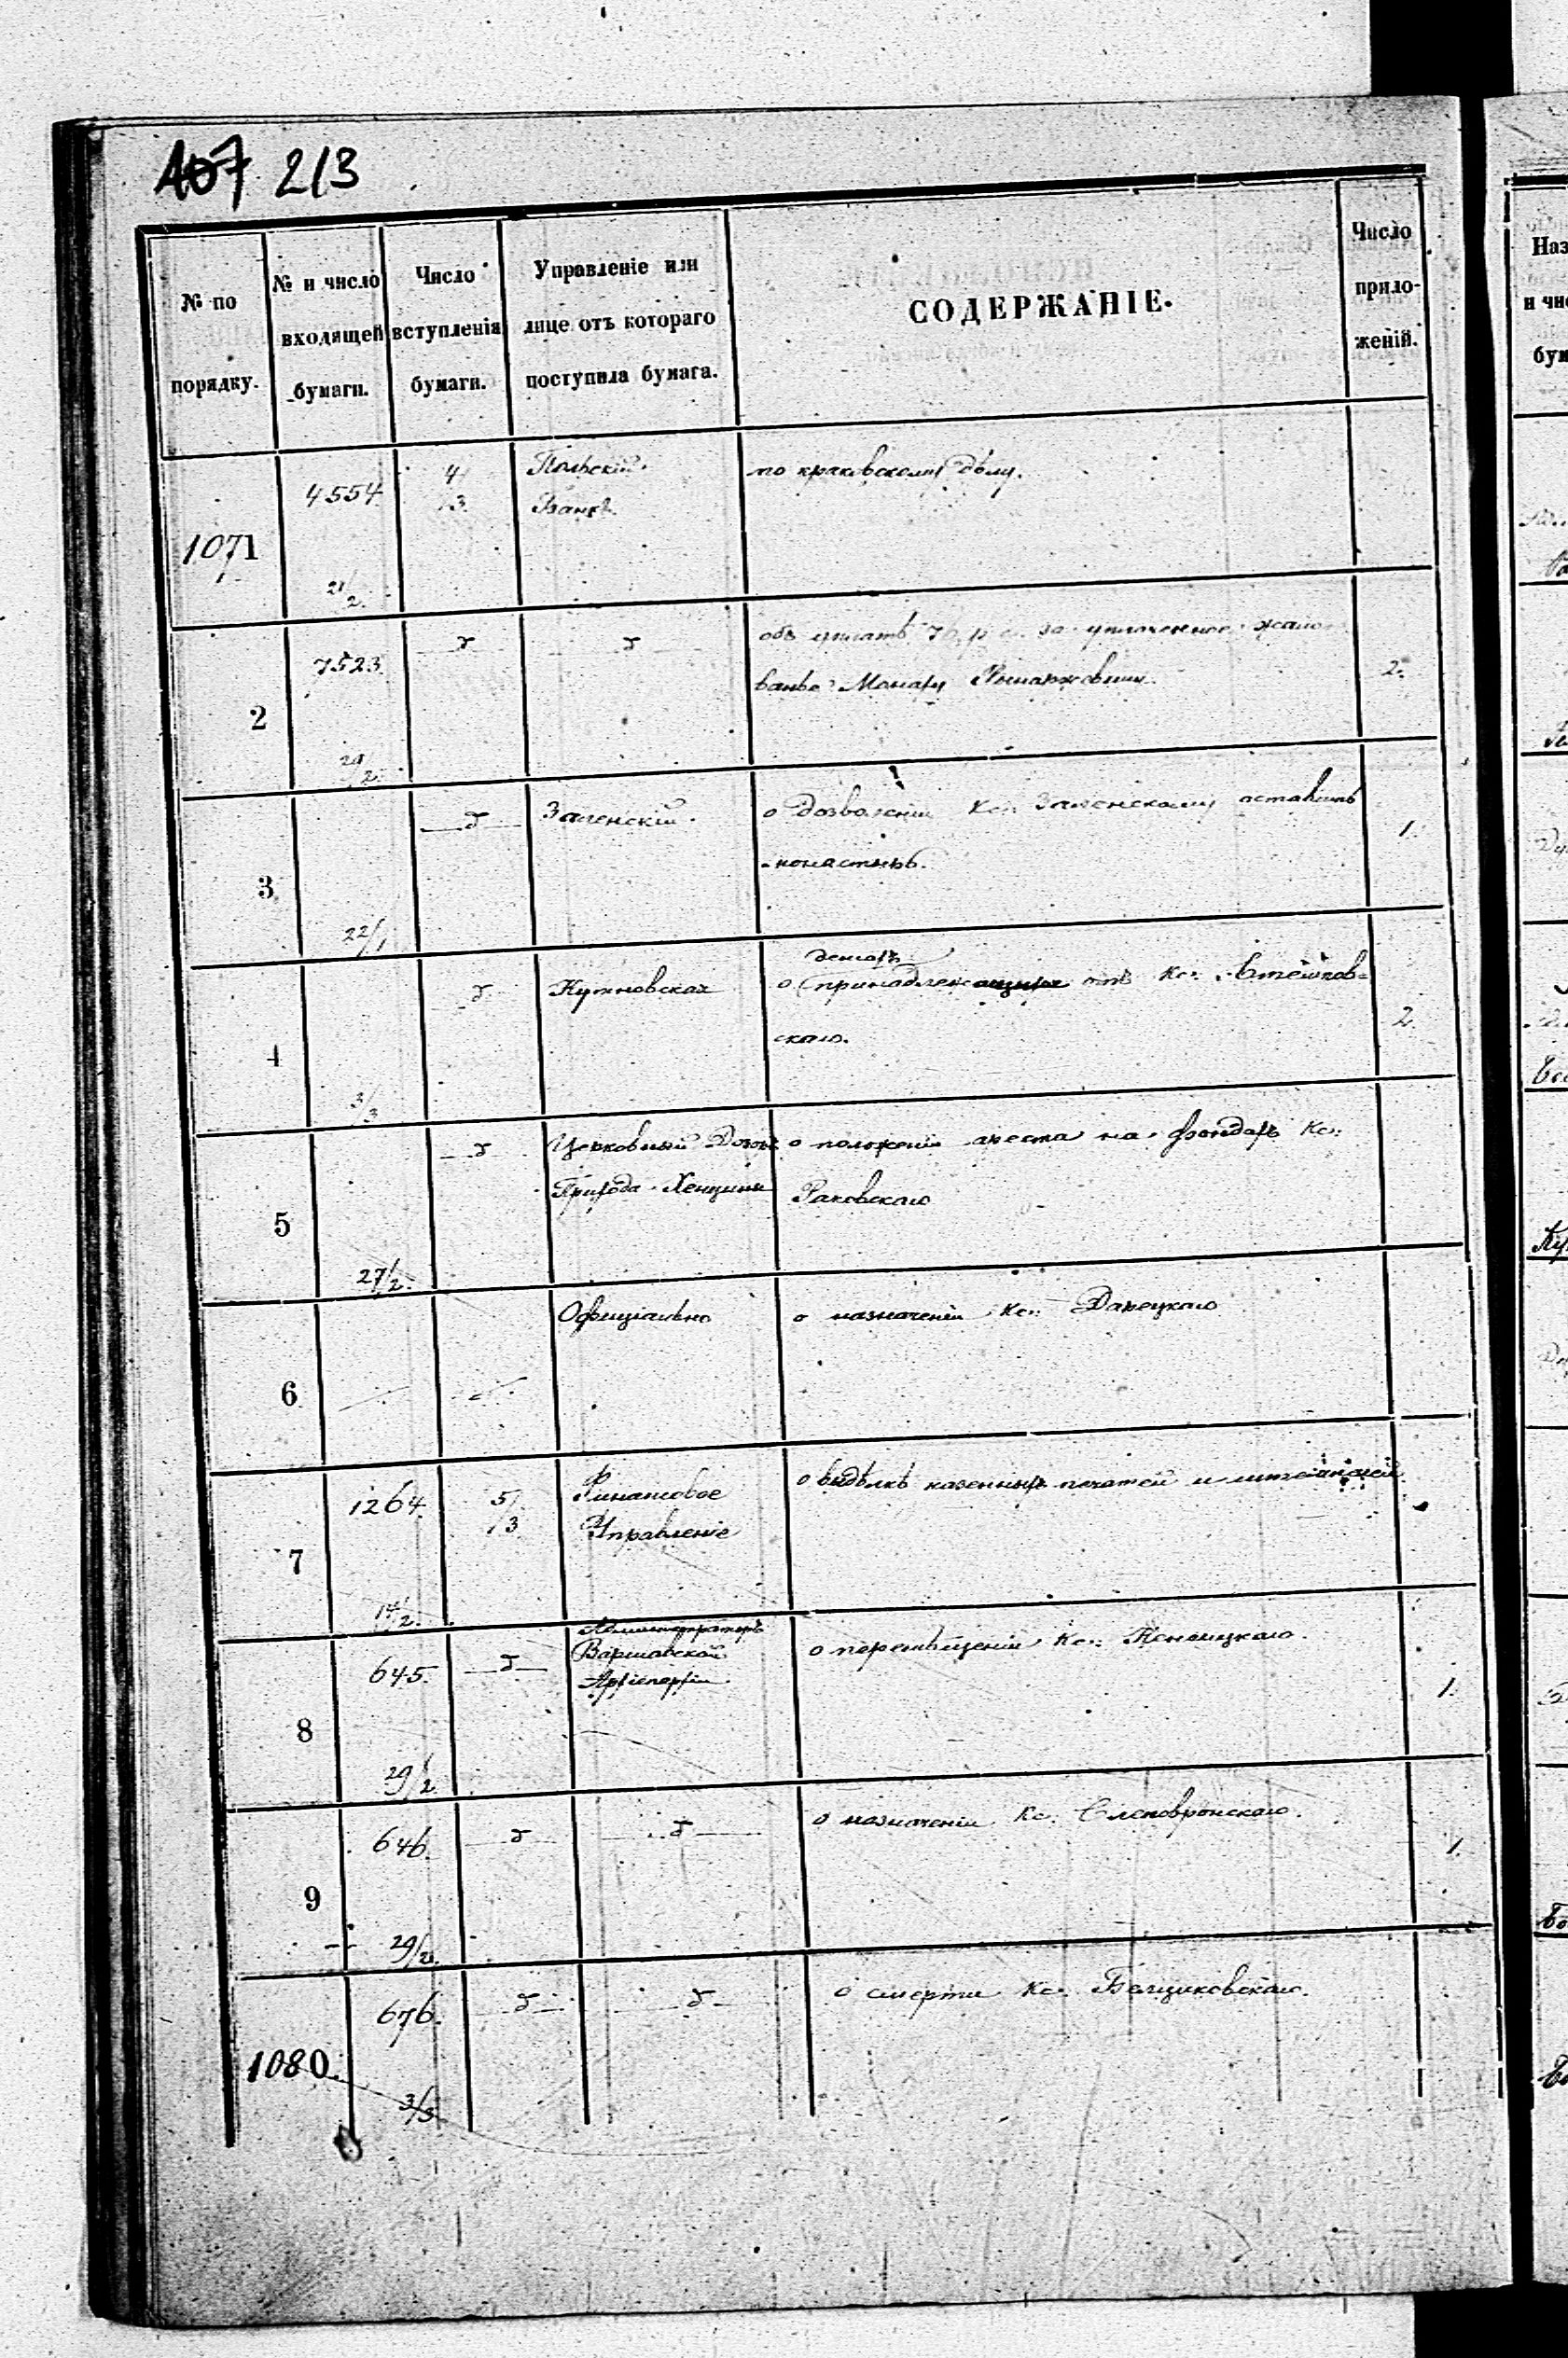 407 213
№ по порядку.
№ и число входящей бумаги.
Число вступленія бумаги.
Управленіе или лице отъ котораго поступила бумага.
СОДЕРЖАНІЕ.
Число приложеній.
1071
4554
21/2.
4/3.
Польскій
Банкъ.
по краковскому дѣлу.
2
7523.
объ уплатѣ р. с. за уплоченное жало-
ванье Монаху
2.
3
22/1
Заленскій.
о дозволеніи Кс: Заленскому оставить
монастырь.
1.
4
3/3
Кутновская
денегъ
о принадлежащихъ отъ Кс:
скаго.
2.
5
27/2.
Церковный Дозоръ
Прихода Хенцины
о положеніи ареста на фондахъ Кс:
Раковскаго
6
Офиціально
о назначеніи Кс: Данецкаго
7
1264.
14/2.
5/3
Финансовое
Управленіе
о выдѣлкѣ казенныхъ печатей и
8
645.
29/2
Администраторъ
Варшавской
Архіепархіи.
о перемѣщеніи Кс:
1.
9
646.
29/2.
о назначеніи Кс.
1.
1080.
676.
3/3
о смерти Кс.